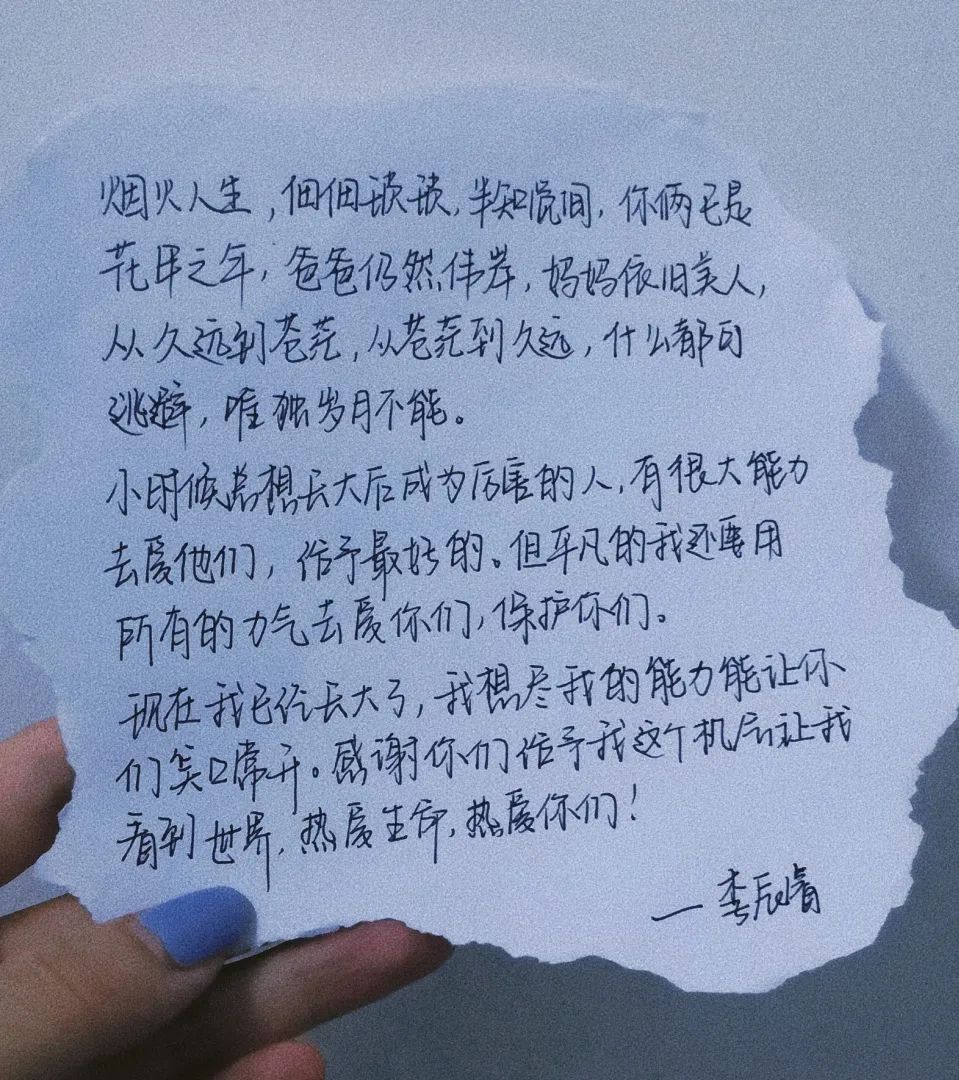 烟火人生，佃佃琐琐，半知觉间，你俩已是
花甲之年，爸爸仍然伟岸，妈妈依旧美人，
从久远到苍茫，从苍茫到久远，什么都可
逃避，唯独岁月不能。
小时候总想长大后成为厉害的人，有很大能力
去爱他们，给予最好的。但平凡的我还要用
所有的力气去爱你们，保护你们。
现在我已经长大了，我想尽我的能力能让你
们笑口常开。感谢你们给予我这个机会让我
看到世界，热爱生命，热爱你们！
—李辰睛